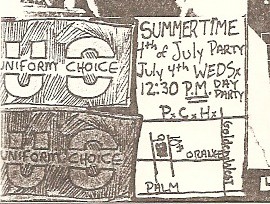 UC
UNIFORM CHOICE
UC
UNIFORM CHOICE
SUMMERTIME
4th of July PARTY
July 4th WEDS
12:30 P.M. DAY
PARTY
P.C.H.
ORANGE
GoldenWest
PALM